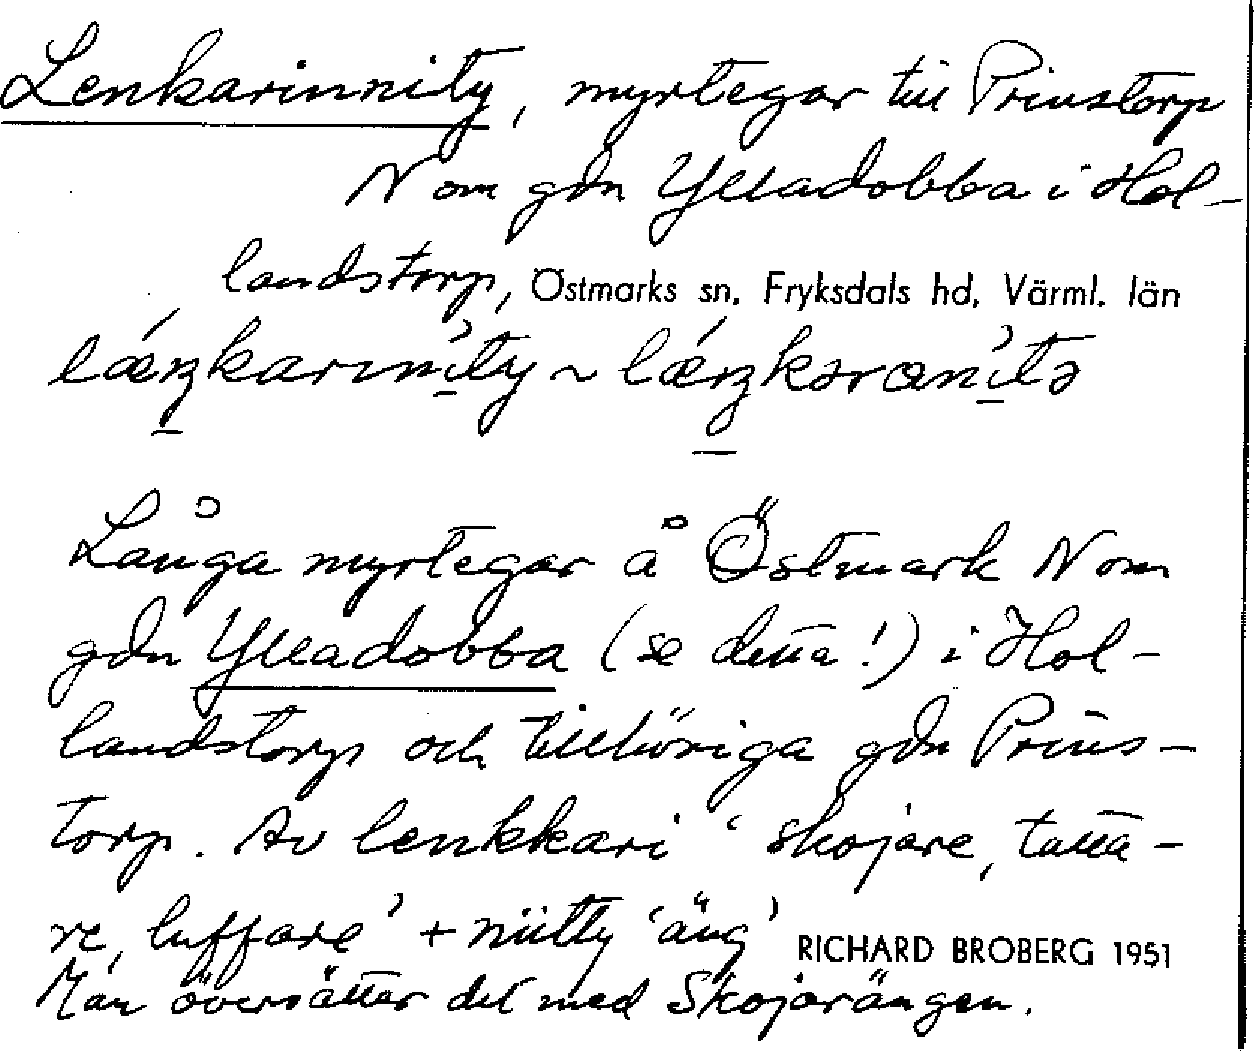 Lenkarinnity, myrtegar till Prinstorp
N om gdn Ylladobba i Hol-
landstorp, Östmarks sn, Fryksdals hd, Värml. län
Långa myrtegar å Östmark N om
gdn Ylladobba (se detta!) i Hol-
landstorp och tillhöriga gdn Prins-
torp. Av lenkkari ‘skojare, tatta-
re, luffare’ + niitty ‘äng’ RICHARD BROBERG 1951
Man översätter det med Skojarängen.